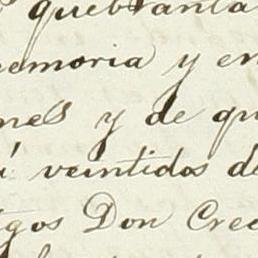 quebranta
emoria y en
nes y de qu
á veintidos de
gos Don Cree